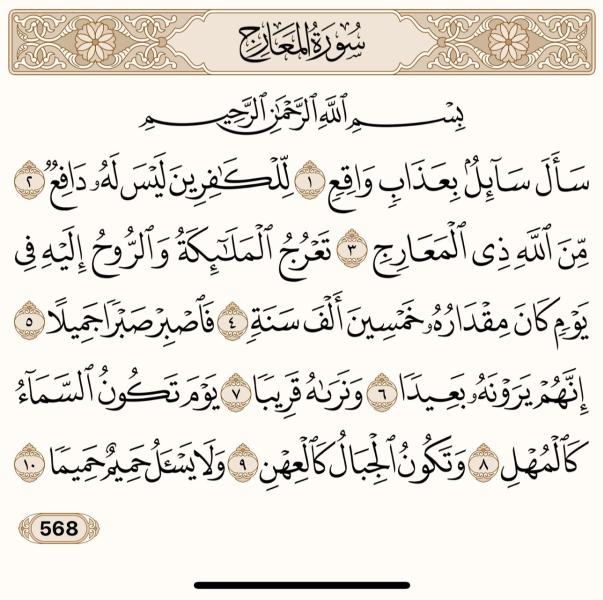 سُورَةُ المَعَارِجِ
بِسْمِ ٱللَّهِ ٱلرَّحْمَٰنِ ٱلرَّحِيمِ
سَأَلَ سَآئِلُۢ بِعَذَابٖ وَاقِعٖ ١ لِّلۡكَٰفِرِينَ لَيۡسَ لَهُۥ دَافِعٞ ٢
مِّنَ ٱللَّهِ ذِي ٱلۡمَعَارِجِ ٣ تَعۡرُجُ ٱلۡمَلَٰٓئِكَةُ وَٱلرُّوحُ إِلَيۡهِ فِي
يَوۡمٖ كَانَ مِقۡدَارُهُۥ خَمۡسِينَ أَلۡفَ سَنَةٖ ٤ فَٱصۡبِرۡ صَبۡرٗا جَمِيلًا ٥
إِنَّهُمۡ يَرَوۡنَهُۥ بَعِيدٗا ٦ وَنَرَىٰهُ قَرِيبٗا ٧ يَوۡمَ تَكُونُ ٱلسَّمَآءُ
كَٱلۡمُهۡلِ ٨ وَتَكُونُ ٱلۡجِبَالُ كَٱلۡعِهۡنِ ٩ وَلَا يَسۡـَٔلُ حَمِيمٌ حَمِيمٗا ١٠
568